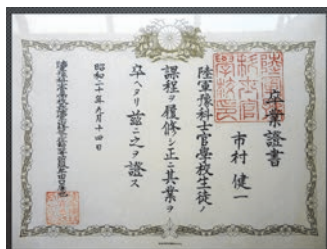 卒業證書
市村健一
陸軍豫科士官學校生徒ノ
課程ヲ履修シ正ニ其業ヲ
卒ヘタリ茲ニ之ヲ證ス
昭和二十年九月十四日
陸軍豫科士官學校